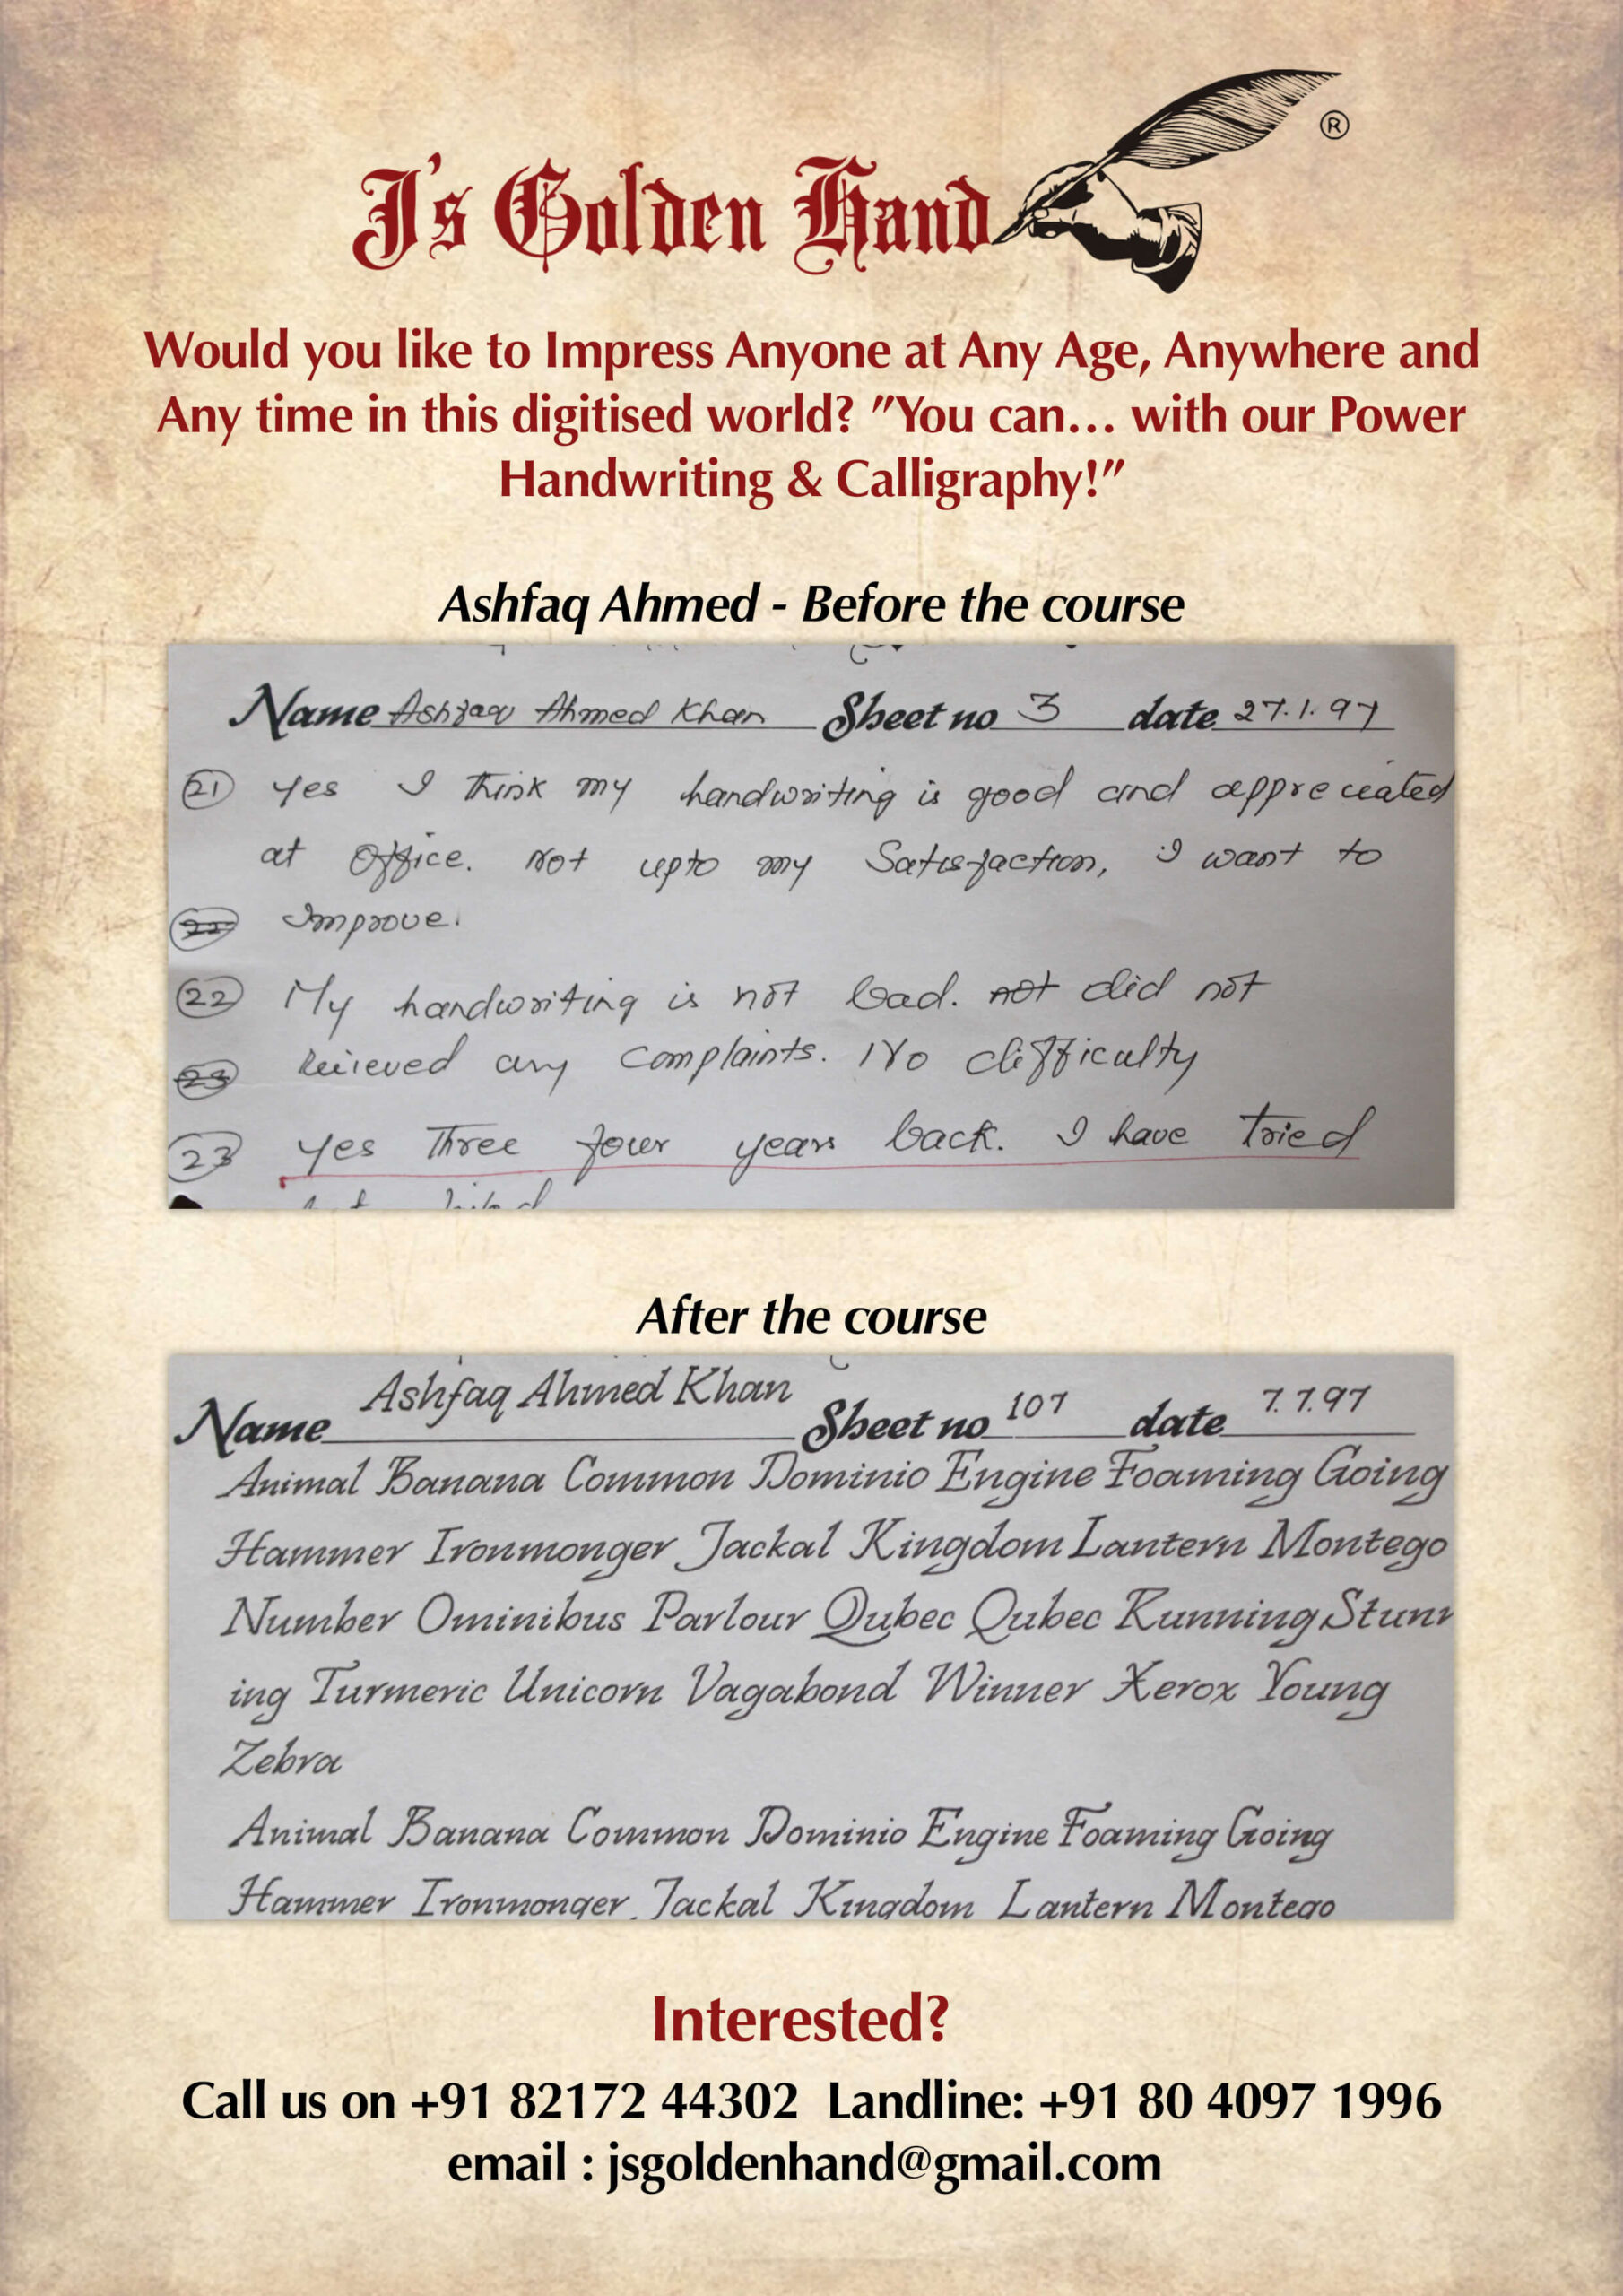 J's Golden Hand ®
Would you like to Impress Anyone at Any Age, Anywhere and
Any time in this digitised world? "You can... with our Power
Handwriting & Calligraphy!"
Ashfaq Ahmed - Before the course
Name Ashfaq Ahmed Khan Sheet no 3 date 27.1.97
21 Yes I think my handwriting is good and appreceated
at office. Not upto my Satisfaction, I want to
22 Improve.
22 My handwriting is not bad. not did not
23 any complaints. No difficulty
23 Yes Three four years back. I have tried
After the course
Name Ashfaq Ahmed Khan Sheet no 107 date 7.7.97
Animal Banana Common Dominio Engine Foaming Going
Hammer Ironmonger Jackal Kingdom Lantern Montego
Number Ominibus Parlour Qubec Qubec Running Stunn
ing Turmeric Unicorn Vagabond Winner Xerox Young
Zebra
Animal Banana Common Dominio Engine Foaming Going
Hammer Ironmonger Jackal Kingdom Lantern Montego
Interested?
Call us on +91 82172 44302 Landline: +91 80 4097 1996
email : jsgoldenhand@gmail.com